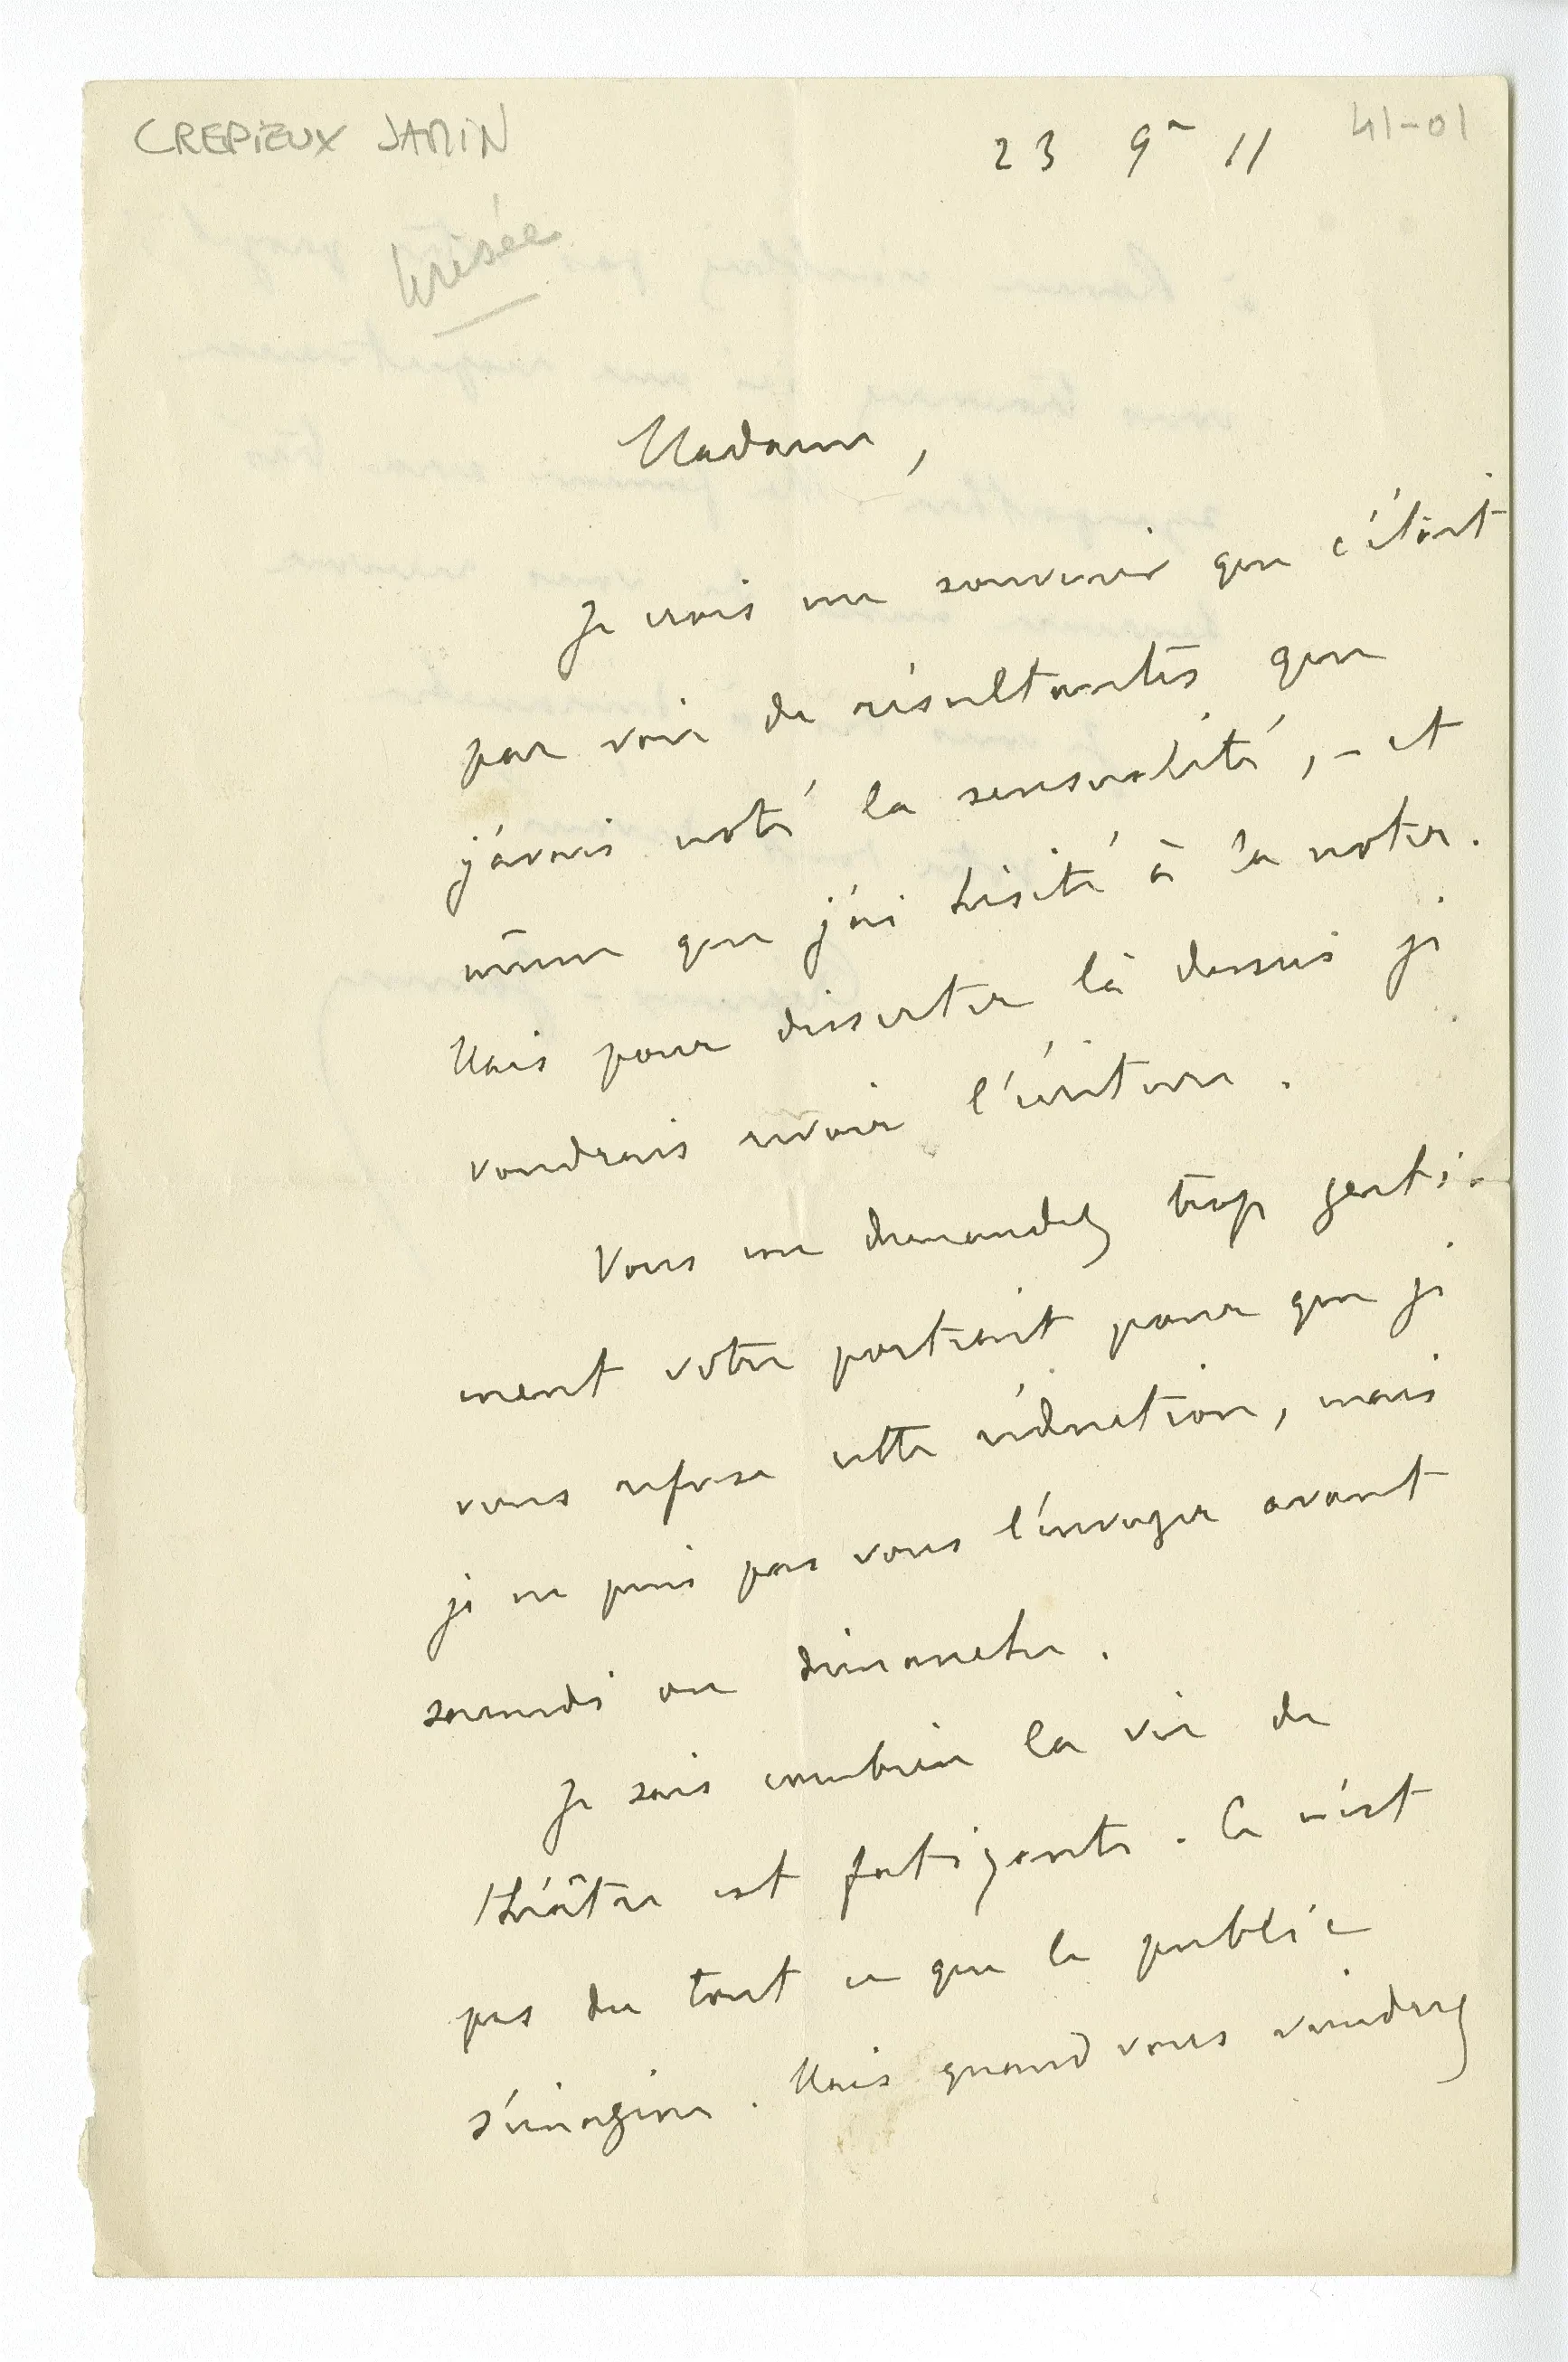 CREPIEUX JAMIN
23 9re 11
41-01
brisée
Madame,
Je crois me souvenir que c'était
par voie de résultantes que
j'avais noté la sensualité, - et
même que j'ai hésité à la noter.
Mais pour disserter là dessus je
voudrais revoir l'écriture.
Vous me demandez trop genti-
ment votre portrait pour que je
vous refuse cette rédaction, mais
je ne puis pas vous l'envoyer avant
samedi ou dimanche.
Je sais combien la vie de
théâtre est fatigante. Ce n'est
pas du tout ce que le public
s'imagine. Mais quand vous viendrez